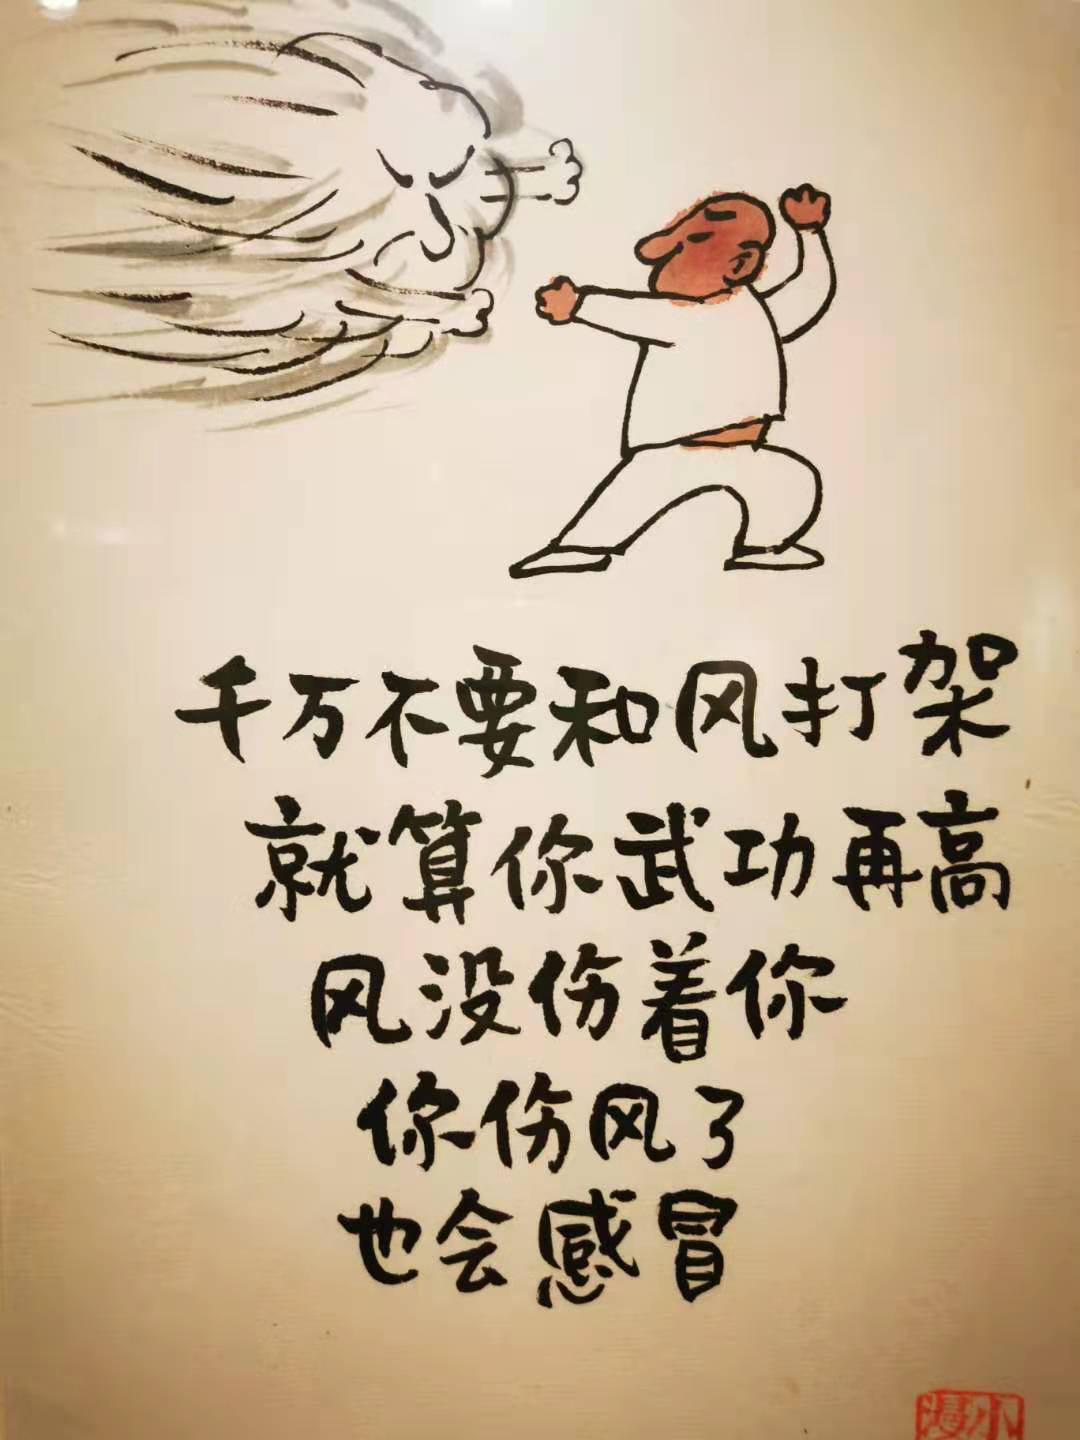 千万不要和风打架
就算你武功再高
风没伤着你
你伤风了
也会感冒